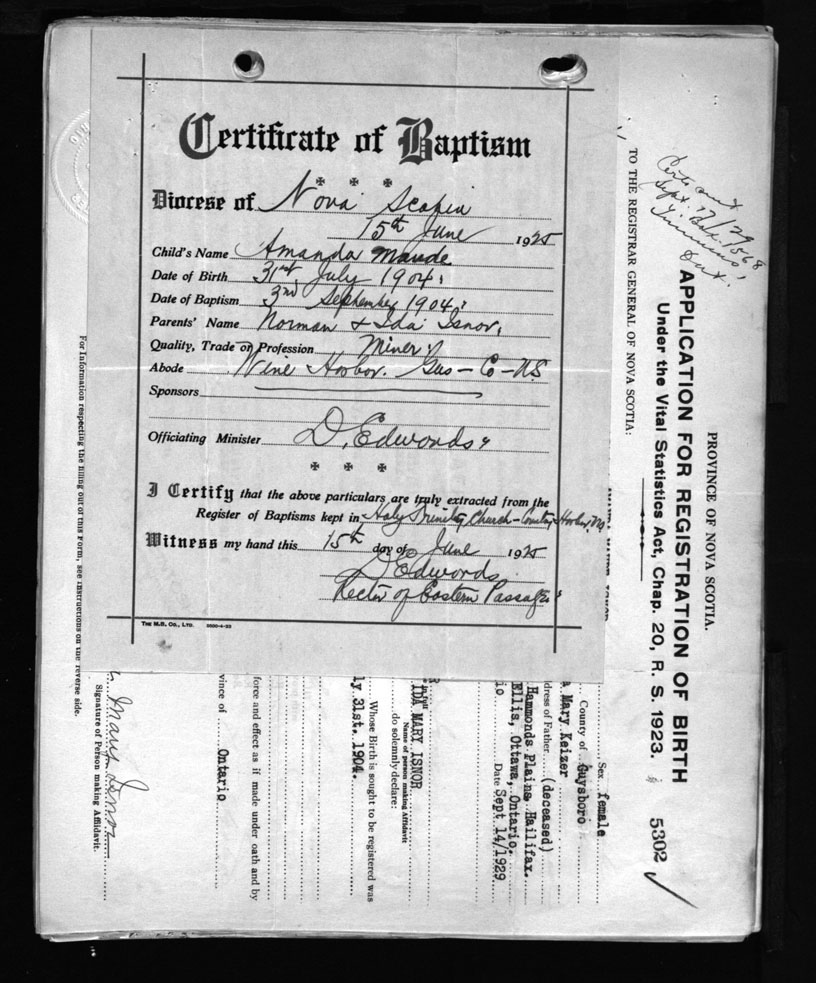 Certificate of Baptism
Diocese of Nova Scotia
15th June 1925
Child's Name Amanda Maude
Date of Birth 31st July 1904.
Date of Baptism 3rd September 1904.
Parents' Name Norman & Ida Isnor.
Quality, Trade or Profession Miner
Abode Wine Harbor. Gus - Co - N.S
Sponsors
Officiating Minister D. Edwards
I Certify that the above particulars are truly extracted from the
Register of Baptisms kept in Holy Trinity Church - Country Harbor, NS
Witness my hand this 15th day of June 1925
D Edwards
Rector of Eastern Passage
THE M.B. CO., LTD. 5500-4-23
Certs out
Sept. 17/29
TO THE REGISTRAR GENERAL OF NOVA SCOTIA:
PROVINCE OF NOVA SCOTIA.
APPLICATION FOR REGISTRATION OF BIRTH 5302
Under the Vital Statistics Act, Chap. 20, R. S. 1923.
Sex female
County of Guysboro
Mary Keizer
dress of Father (deceased)
Hammonds Plains Hailifax.
Ellis, Ottawa, Ontario.
io Date Sept 14/1929
in full
IDA MARY ISNOR
Name of person making Affidavit
do solemnly declare:
Whose Birth is sought to be registered was
ly 31st. 1904.
force and effect as if made under oath and by
vince of Ontario
Mary Isnor
Signature of Person making Affidavit.
For Information respecting the filling out of this Form, see instructions on the reverse side.